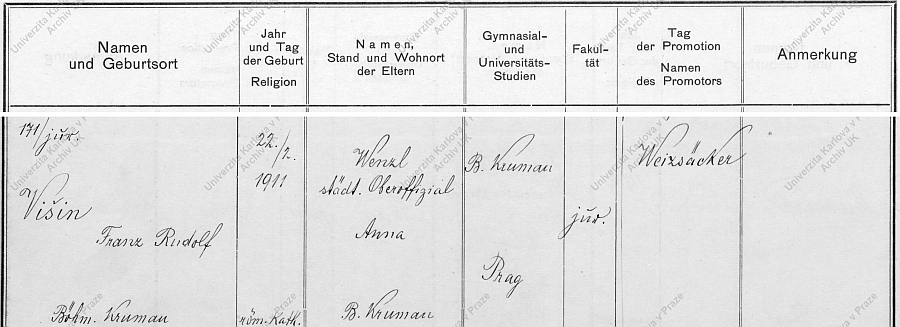 Namen
und Geburtsort
Jahr
und Tag
der Geburt
Religion
Namen,
Stand und Wohnort
der Eltern
Gymnasial-
und
Universitäts-
Studien
Fakul-
tät
Tag
der Promotion
Namen
des Promotors
Anmerkung
171/jur.
Višin
Franz Rudolf
Böhm. Krumau
22./2.
1911
röm. Kath.
Wenzl
städt. Oberoffizial
Anna
B. Krumau
B. Krumau
Prag
jur.
Weizsäcker
Univerzita Karlova v Praze
Archiv UK